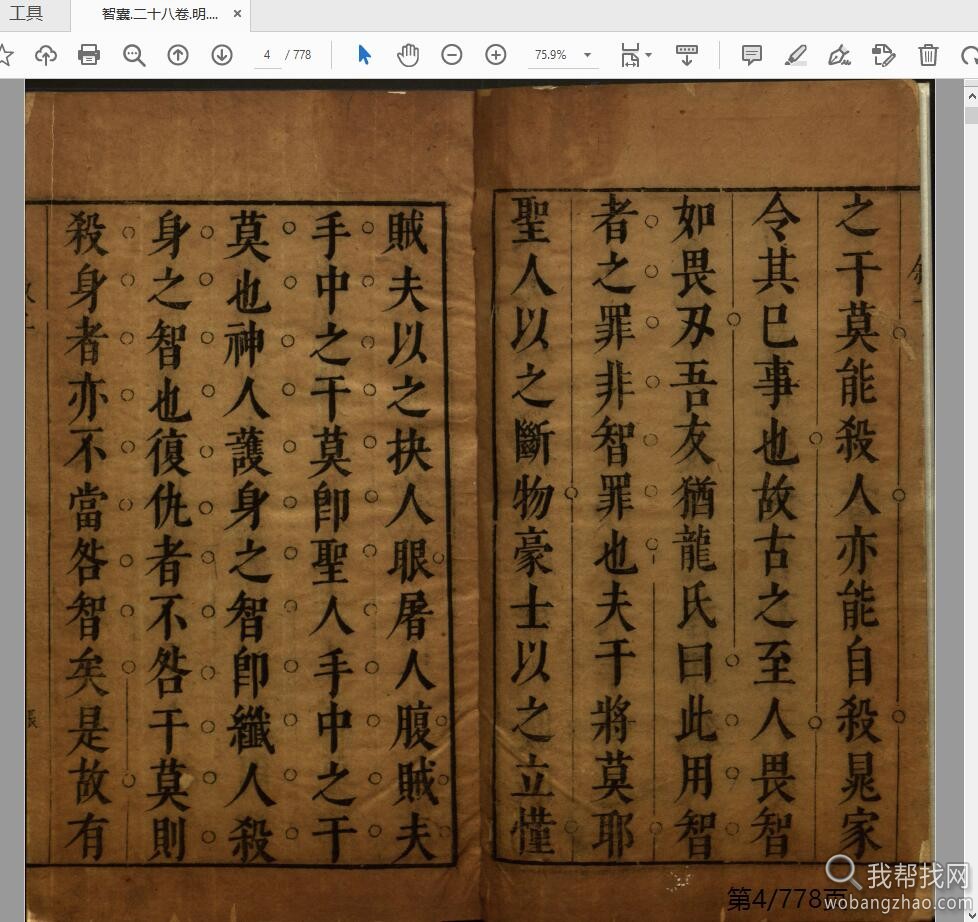 工具
智囊.二十八卷.明....
4 / 778
75.9%
之干莫能殺人亦能自殺晁家
令其已事也故古之至人畏智
如畏刃吾友猶龍氏曰此用智
者之罪非智罪也夫干將莫耶
聖人以之斷物豪士以之立懂
賊夫以之抉人眼屠人腹賊夫
手中之干莫卽聖人手中之干
莫也神人護身之智卽纖人殺
身之智也復仇者不咎干莫則
殺身者亦不當咎智矣是故有
第4/778页
我帮找网
wobangzhao.com